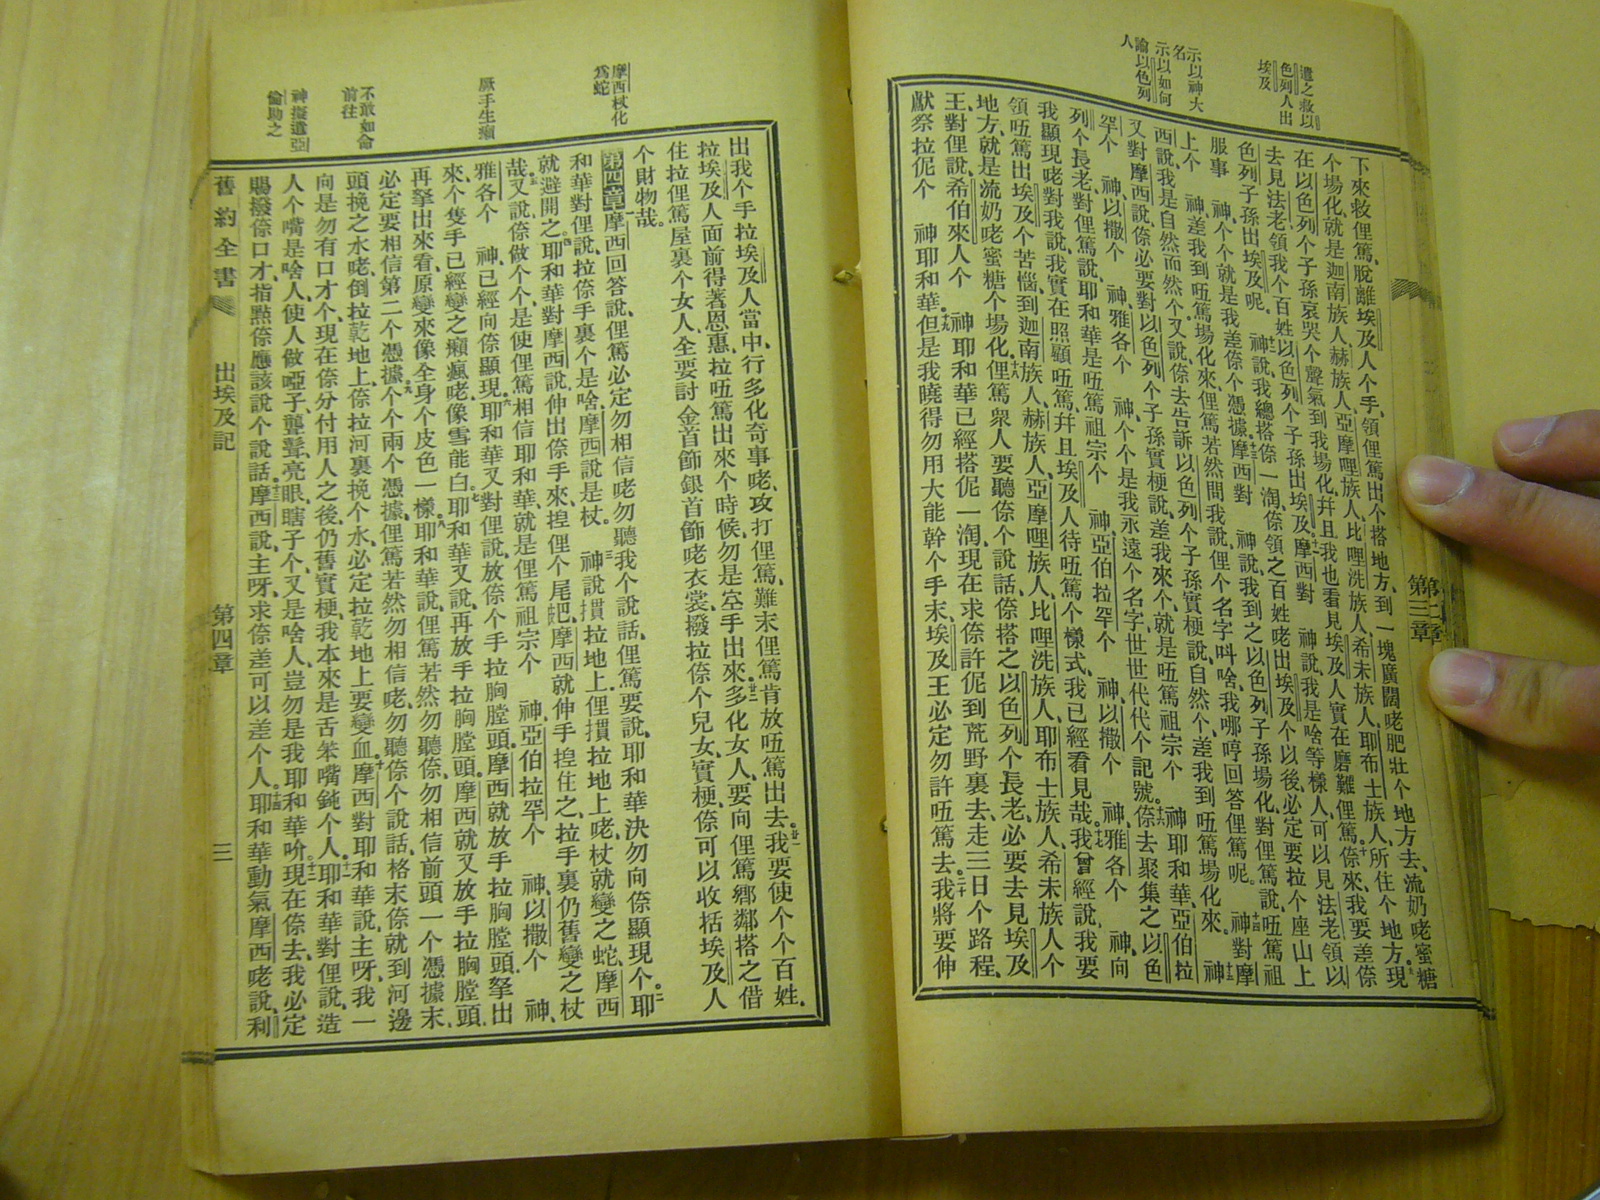 遣之救以
色列人出
埃及
示以神大
名
示以如何
諭以色列
人
第二章
第三章
下來救俚篤、脫離埃及人个手、領俚篤出个搭地方、到一塊廣闊咾肥壯个地方去、流奶咾蜜糖
个場化、就是迦南族人、赫族人、亞摩哩族人、比哩洗族人、希未族人、耶布士族人、所住个地方、現
在以色列个子孫哀哭个聲氣、到我場化、幷且我也看見埃及人實在磨難俚篤、倷來、我要差倷
去見法老、領我个百姓以色列个子孫出埃及。摩西對　神說、我是啥等樣人、可以見法老、領以
色列子孫出埃及呢。　神說、我總搭倷一淘、倷領之百姓咾出埃及个以後、必定要拉个座山上
服事　神、个个就是我差倷个憑據。摩西對　神說、我到之以色列子孫場化、對俚篤說、唔篤祖
上个　神、差我到唔篤場化來、俚篤若然問我說、俚个名字呌啥、我哪哼回答俚篤呢。　神對摩
西說、我是自然而然个、又說、倷去告訴以色列个子孫實梗說、自然个、差我到唔篤場化來。　神
又對摩西說、倷必要對以色列个子孫實梗說、差我來个、就是唔篤祖宗个　神耶和華、亞伯拉
罕个　神、以撒个　神、雅各个　神、个个是我永遠个名字、世世代代个記號。倷去聚集之以色
列个長老、對俚篤說、耶和華是唔篤祖宗个　神、亞伯拉罕个　神、以撒个　神、雅各个　神、向
我顯現咾對我說、我實在照顧唔篤、幷且埃及人待唔篤个樣式、我已經看見哉。我曾經說、我要
領唔篤出埃及个苦惱、到迦南族人、赫族人、亞摩哩族人、比哩洗族人、耶布士族人、希未族人个
地方、就是流奶咾蜜糖个場化、俚篤衆人要聽倷个說話、倷搭之以色列个長老、必要去見埃及
王、對俚說、希伯來人个　神耶和華、已經搭伲一淘、現在求倷許伲到荒野裏去、走三日个路程、
獻祭拉伲个　神耶和華。但是我曉得勿用大能幹个手末、埃及王必定勿許唔篤去。我將要伸
摩西杖化
爲蛇
厥手生癩
不敢如命
前往
神擬遣亞
倫助之
出我个手、拉埃及人當中、行多化奇事咾、攻打俚篤、難末俚篤肯放唔篤出去。我要使个个百姓、
拉埃及人面前得著恩惠、拉唔篤出來个時候、勿是空手出來、多化女人、要向俚篤鄉鄰搭之借
住拉俚篤屋裏个女人、全要討金首飾銀首飾咾衣裳、撥拉倷个兒女、實梗、倷可以收括埃及人
个財物哉。
第四章　摩西回答說、俚篤必定勿相信咾勿聽我个說話、俚篤要說、耶和華決勿向倷顯現个。耶
和華對俚說、拉倷手裏个是啥、摩西說、是杖。　神說、摜拉地上、俚摜拉地上咾、杖就變之蛇、摩西
就避開之。耶和華對摩西說、伸出倷手來、揑俚个尾肥、摩西就伸手揑住之、拉手裏仍舊變之杖
哉。又說、倷做个个、是使俚篤相信耶和華、就是俚篤祖宗个　神、亞伯拉罕个　神、以撒个　神、
雅各个　神、已經向倷顯現。耶和華又對俚說、放倷个手拉胸膛頭、摩西就放手拉胸膛頭、拏出
來、个隻手已經變之癩瘋咾、像雪能白。耶和華又說、再放手拉胸膛頭、摩西就又放手拉胸膛頭、
再拏出來看、原變來像全身个皮色一樣。耶和華說、俚篤若然勿聽倷、勿相信前頭一个憑據末、
必定要相信第二个憑據。个个兩个憑據、俚篤若然勿相信咾、勿聽倷个說話、格末倷就到河邊
頭挽之水咾、倒拉乾地上、倷拉河裏挽个水、必定拉乾地上要變血。摩西對耶和華說、主呀、我一
向是勿有口才个、現在倷分付用人之後、仍舊實梗、我本來是舌笨嘴鈍个人。耶和華對俚說、造
人个嘴是啥人、使人做啞子、聾聱、亮眼、瞎子个、又是啥人、豈勿是我耶和華吤。現在倷去、我必定
賜撥倷口才、指點倷應該說个說話。摩西說、主呀、求倷差可以差个人。耶和華動氣摩西咾說、利
舊約全書　出埃及記　第四章　三